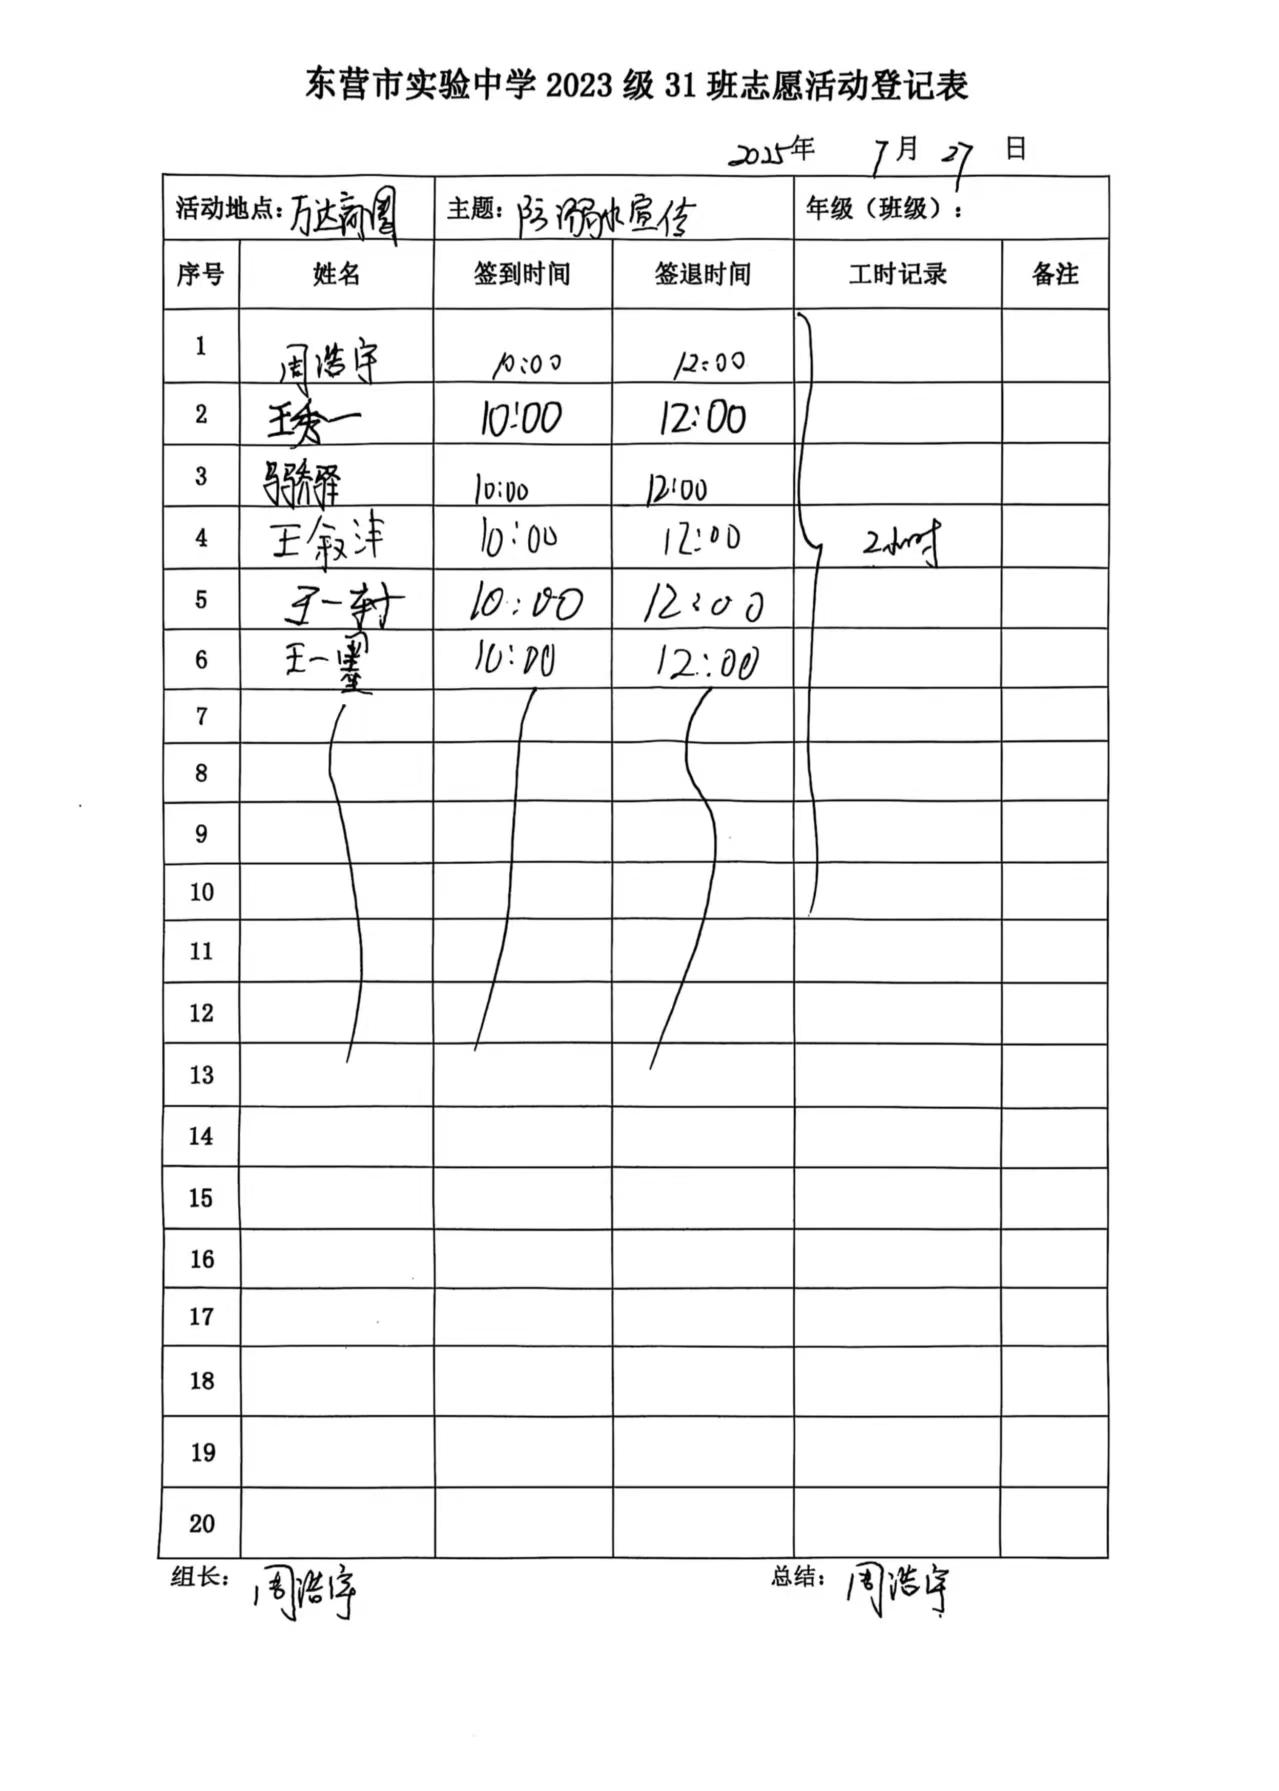 东营市实验中学 2023 级 31 班志愿活动登记表
2025年 7月 27 日
活动地点:万达商圈 主题:防溺水宣传 年级（班级）:
序号 姓名 签到时间 签退时间 工时记录 备注
1 周浩宇 10:00 12:00
2 王秀一 10:00 12:00
3 10:00 12:00
4 王叙沣 10:00 12:00 2小时
5 10:00 12:00
6 王一墨 10:00 12:00
7
8
9
10
11
12
13
14
15
16
17
18
19
20
组长: 周浩宇 总结: 周浩宇